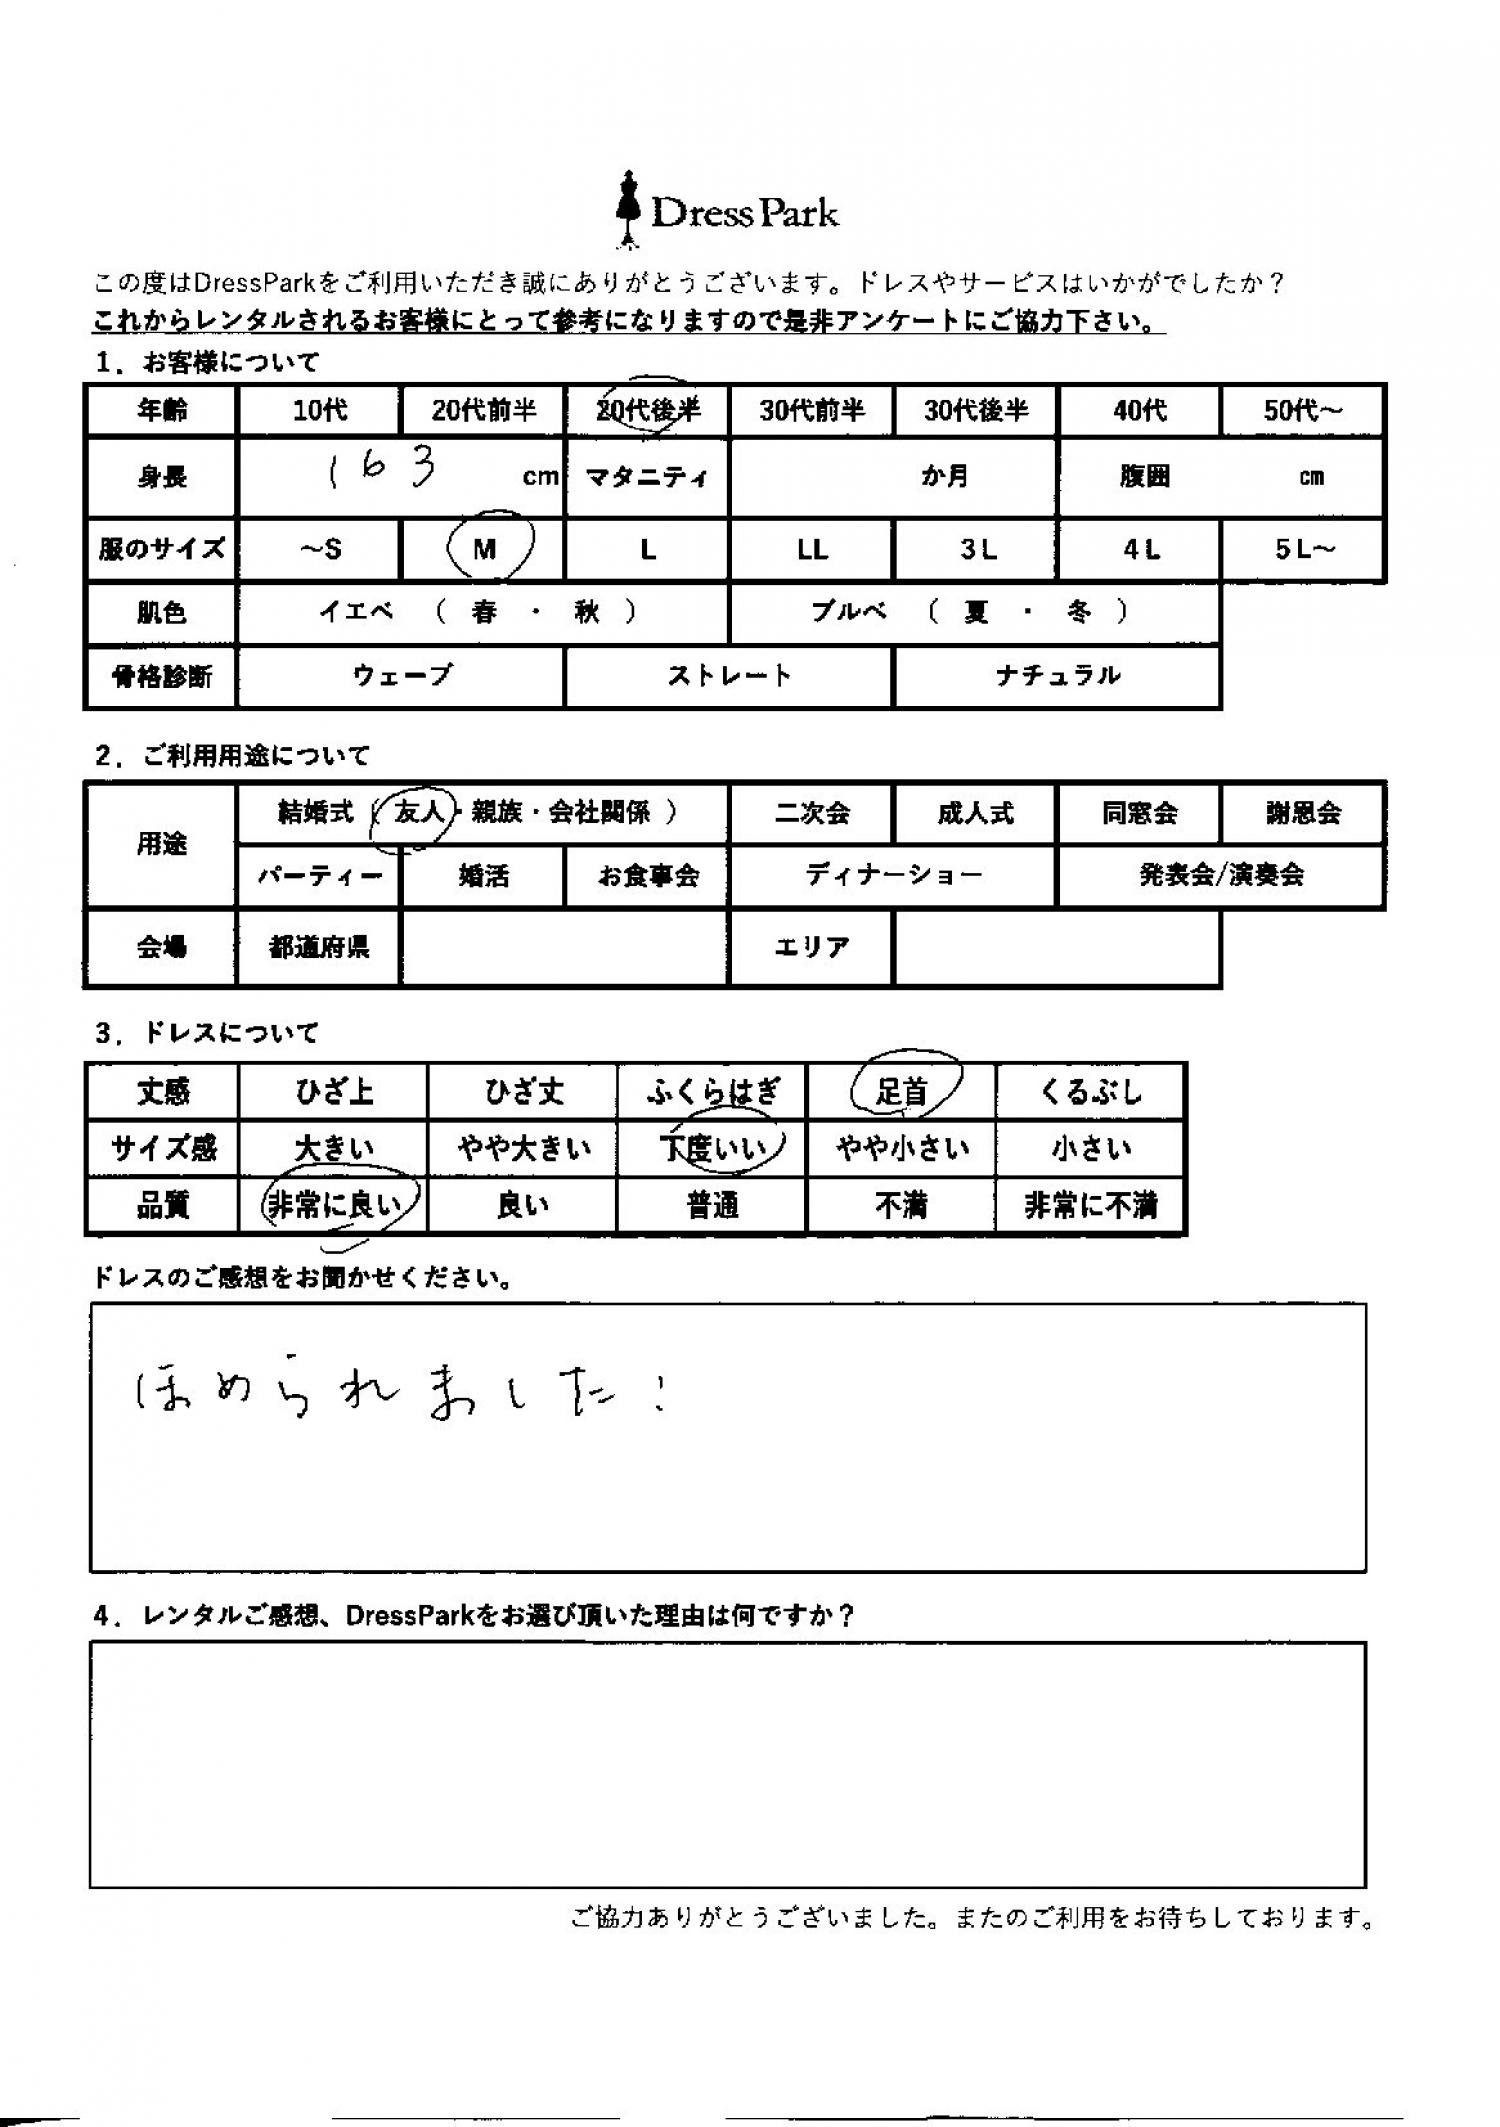 DressPark
この度はDressParkをご利用いただき誠にありがとうございます。ドレスやサービスはいかがでしたか？
これからレンタルされるお客様にとって参考になりますので是非アンケートにご協力下さい。
1．お客様について
年齢 10代 20代前半 20代後半 30代前半 30代後半 40代 50代～
身長 163 cm マタニティ か月 腹囲 cm
服のサイズ ～S M L LL 3L 4L 5L～
肌色 イエベ （ 春 ・ 秋 ） ブルベ （ 夏 ・ 冬 ）
骨格診断 ウェーブ ストレート ナチュラル
2．ご利用用途について
用途 結婚式（ 友人・親族・会社関係 ） 二次会 成人式 同窓会 謝恩会
パーティー 婚活 お食事会 ディナーショー 発表会/演奏会
会場 都道府県 エリア
3．ドレスについて
丈感 ひざ上 ひざ丈 ふくらはぎ 足首 くるぶし
サイズ感 大きい やや大きい 丁度いい やや小さい 小さい
品質 非常に良い 良い 普通 不満 非常に不満
ドレスのご感想をお聞かせください。
ほめられました！
4．レンタルご感想、DressParkをお選び頂いた理由は何ですか？
ご協力ありがとうございました。またのご利用をお待ちしております。